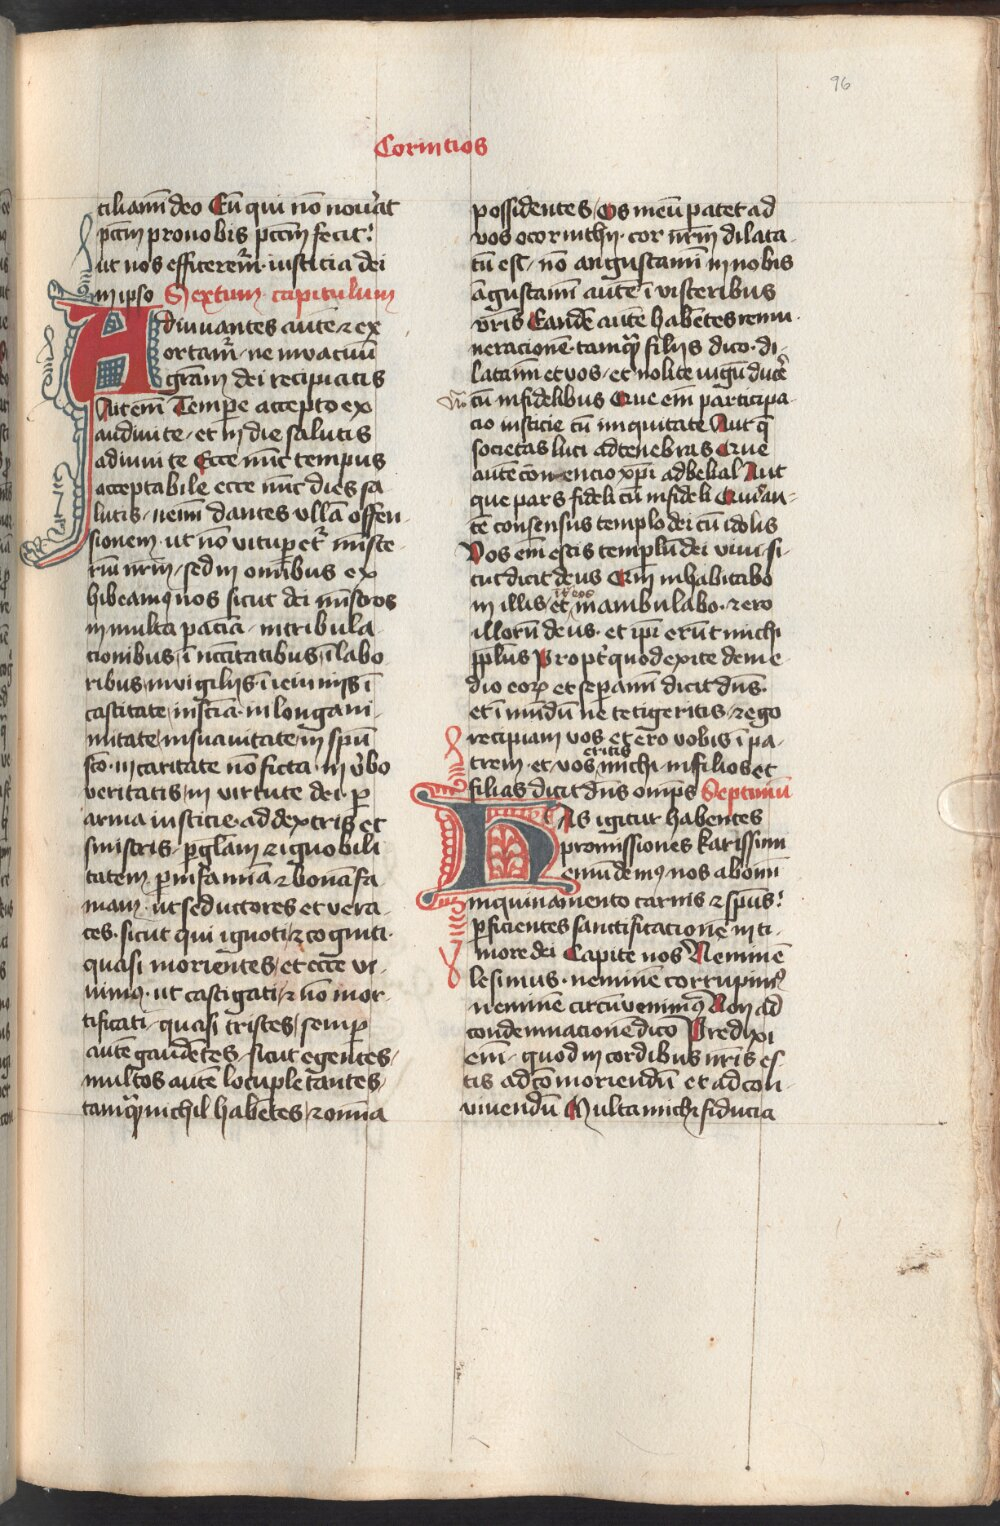 96
Corintios
ciliamī deo Eū qui nō nouat
pctm̄ pro nobis pctm̄ fecit
ut nos efficerem̄ iusticia dei
in ipso Sextum capitulum
Adiuuantes autē et ex
ortam̄ ne in vacuū
gr̄am dei recipiatis
Ait enī Tempe accepto ex
audiui te et in die salutis
adiuui te Ecce nūc tempus
acceptabile ecce nūc dies sa
lutis nemī dantes vllā offen
sionem ut nō vitupet̄ miste
riū nrm̄ sed in omībus ex
hibeamꝰ nos sicut dei mīstros
in multa paciā in tribula
cionibus ī ncc̄itatibus ī labo
ribus in vigiliis ī ieiuniis ī
castitate in scīa in longani
mitate in suauitate in spū
sc̄o in caritate nō ficta in v̄bo
veritatis in virtute dei ꝑ
arma iusticie a dextris et
sinistris ꝑ glam̄ et ignobili
tatem ꝑ infamiā et bonā fa
mam ut seductores et vera
ces sicut qui ignoti et cogniti
quasi morientes et ecce vi
uimꝰ ut castigati et nō mor
tificati quasi tristes semꝑ
autē gaudētes sicut egentes
multos autē locupletantes
tamqꝫ nichil habētes et omīa
possidentes Os meū patet ad
vos o corinthij cor nrm̄ dilata
tū est nō angustamī in nobis
āgustamī autē ī visceribus
vr̄is Eandē autē habētes remu
neracionē tamqꝫ filiis dico di
latamī et vos et nolite iugū duce
cū infidelibus Que enī participa
cio iusticie cū iniquitate Aut q̄
societas luci ad tenebras Que
autē cōuencio xp̄i ad belial Aut
que pars fideli cū infideli Qui an
tē consensus templo dei cū idolis
Vos enī estis templū dei viui si
cut dicit deus Qm̄ inhabitabo
in illis et inambulabo et ero
illorū deus et ip̄i erūt michi
pp̄lus Propt̄ quod exite de me
dio eoꝝ et sepamī dicit dn̄s
et ī mūdū ne tetigeritis et ego
recipiam vos et ero vobis ī pa
trem et vos eritis michi in filios et
filias dicit dn̄s omp̄s Septimū
Has igitur habentes
promissiones karissimi
emūdemꝰ nos ab omī
inquinamento carnis et spūs
ꝑficientes sanctificacionē in ti
more dei Capite nos Neminē
lesimus neminē corrupimꝰ
neminē circūuenimꝰ Non ad
condemnacionē dico Predixi
enī quod in cordibus nr̄is es
tis ad cōmoriendū et ad con
viuendū Multa michi fiducia